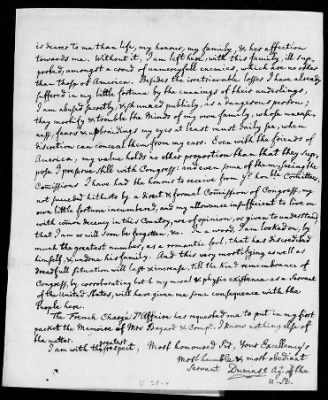 is dearer to me than life, my honour, my family, & her affection
towards me. Without it, I am left here, with this family, ill sup-
ported, amongst a croud of unmercyfull enemies, which are no other
than those of America. Besides the irretrievable losses I have already
suffered in my little fortune by the cunnings of their underlings,
I am abused secretly, & shunned publicly, as a dangerous person; 
they mortify & tremble the minds of my own family, whose
fears & upbraidings my eyes at least must daily see, when
discretion can conceal them from my ears. Even with the friends of
America, my value holds no other proportion than that they sup-
pose I preserve still with Congress: and even some of them, seeing the
Comissions I have had the honour to receive from yr. honble. Comittee,
not succeded hitherto by a direct & formal Comission of Congress, my
own little fortune incumbered, and my allowance insufficient to live on
with comon decency in this Country, are of opinion, or given to understand
that I am or will soon be forgotten, &c. In a word, I am looked on, by
much the greatest number, as a romantic fool, that has discredited
himself, & undone his family. And this very mortifying as well as
dreadfull situation will last & increase, till the kind remembrance of
Congress, by corroborating both my moral & physic existence as a Servant
of the United States, will have given me some consequence with the
People here.
The French Chargé D'Affaires has requested me to put in my first
packet the Memoire of Mrs. Bayard & Compe. I know nothing else of
the matter.
I am with the greatest respect, Most honoured Sir, Your Excellency's
Most humble & most obedient
Servant Dumas Ag. of the
U. St.